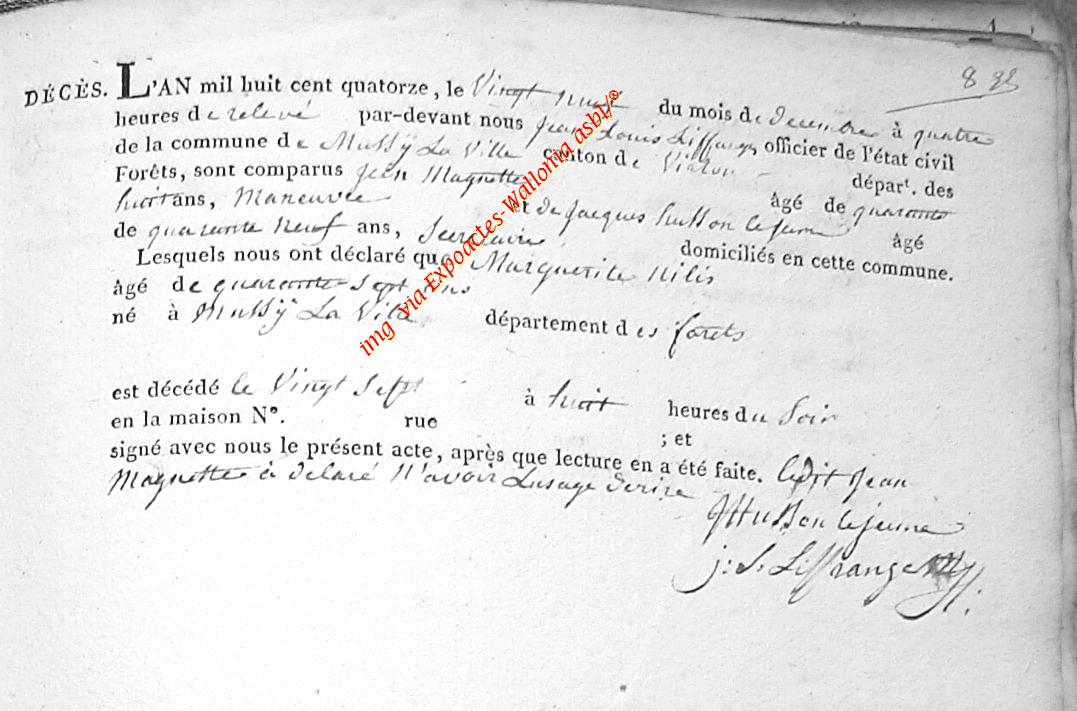 DÉCÈS. L'AN mil huit cent quatorze, le Vingt neuf du mois de decembre à quatre
heures de relevé par-devant nous Jean Louis Liffrange, officier de l'état civil
de la commune de Mussÿ La Ville canton de Virton dépar^t. des
Forêts, sont comparus Jean Magnette âgé de quarante
huit ans, Maneuvre et de Jacques husson lejeune âgé
de quarante neuf ans, Secretaire domiciliés en cette commune.
Lesquels nous ont déclaré que Marguerite Nilis
âgé de quarante sept ans
né à Mussÿ La Ville département des forets
est décédé le Vingt Sept à huit heures du Soir
en la maison N°. rue ; et
signé avec nous le présent acte, après que lecture en a été faite. Ledit Jean
Magnette à delaré N'avoir Lusage decrire
JHusson lejeune
j: L: Liffrange
img via Expoactes-Wallonia asbl/®